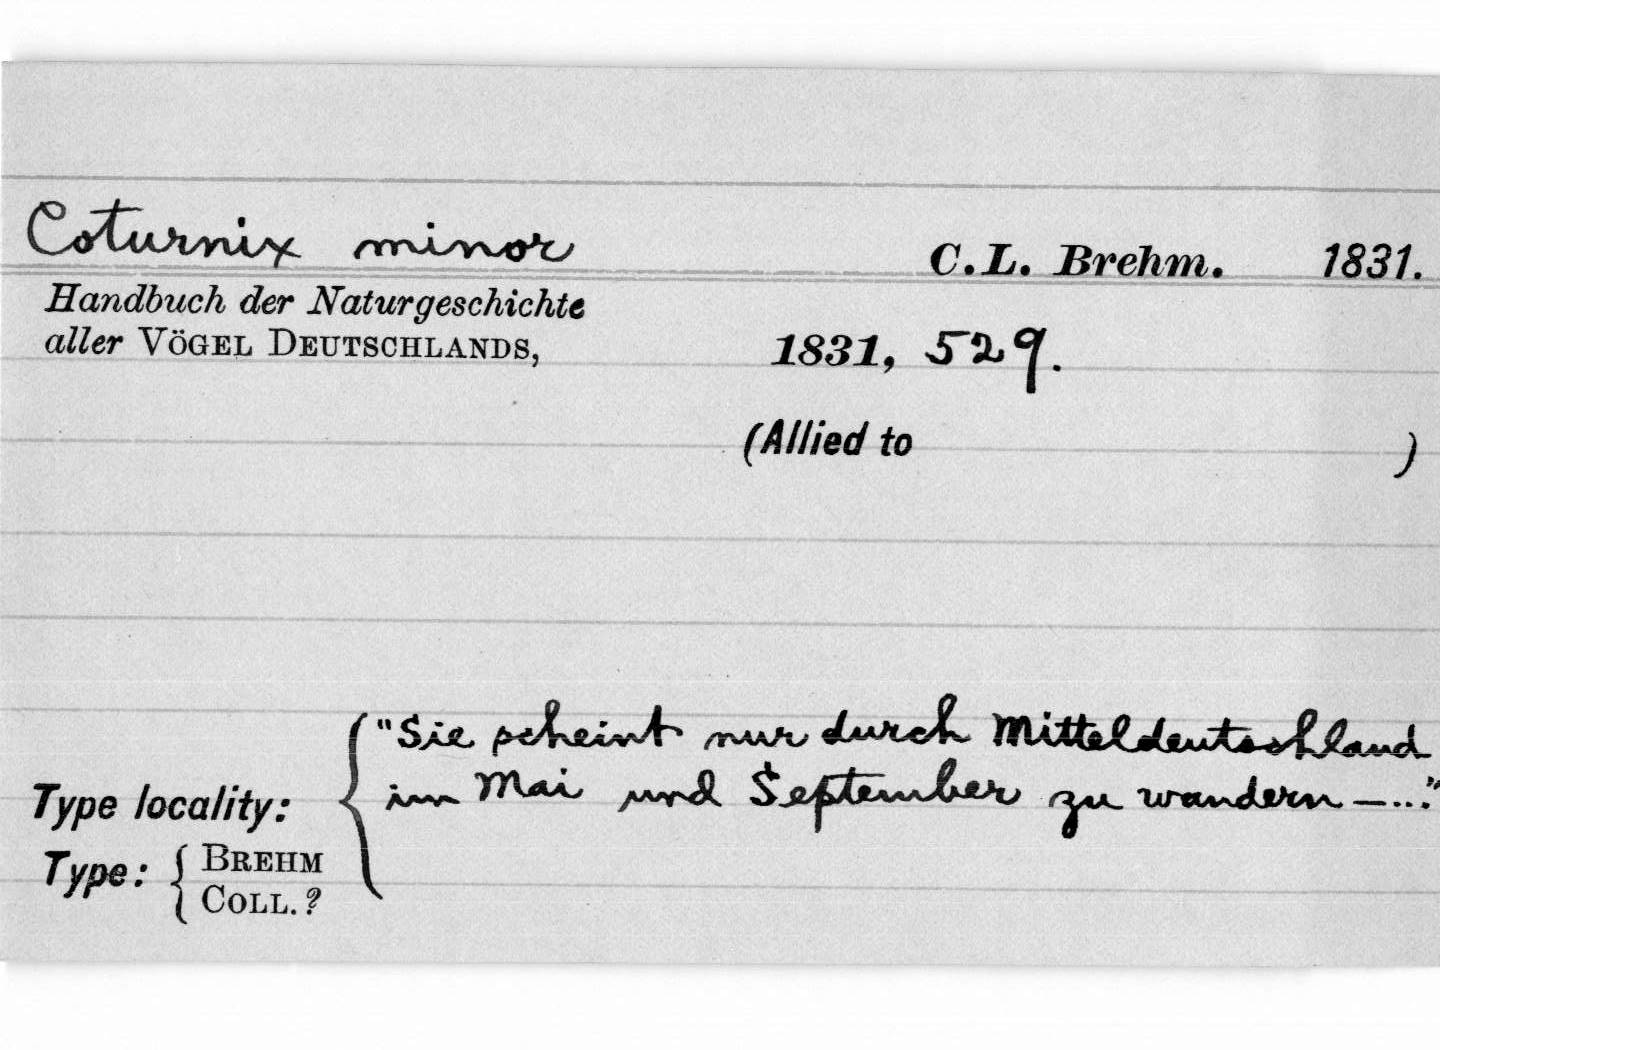 Coturnix minor C.L. Brehm. 1831.
Handbuch der Naturgeschichte
aller VÖGEL DEUTSCHLANDS, 1831, 529.
(Allied to )
"Sie scheint nur durch Mitteldeutschland
im Mai und September zu wandern —..."
Type locality:
Type: { BREHM
COLL.?